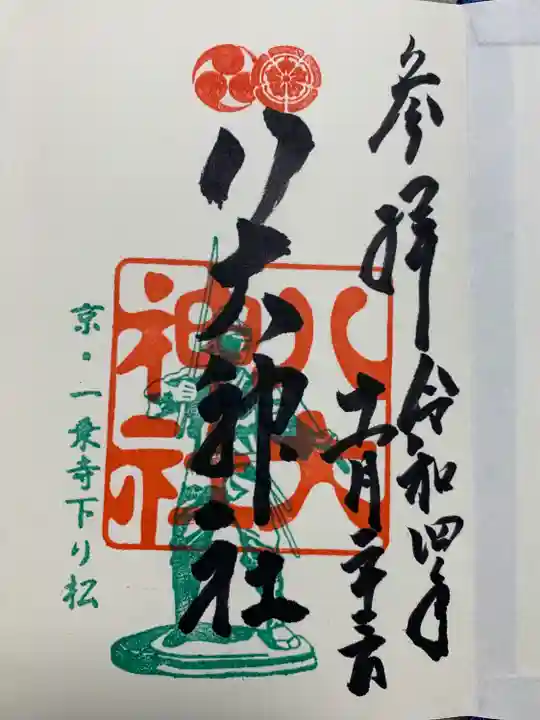 参拝
令和四年
十一月二十三日
八大神社
八大
神社
京・一乗寺下り松